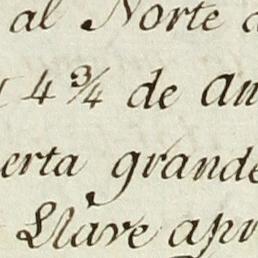 al Norte
4 3/4 de an
erta grande
Llave apr